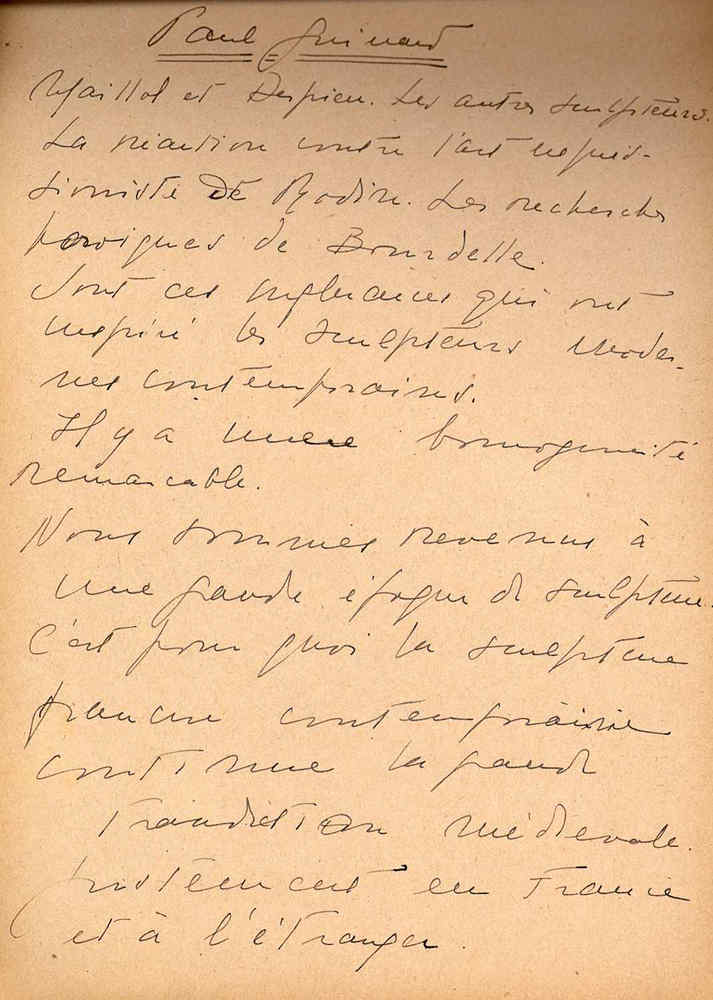 Paul Guinard
Maillol et Despieu. Les autres sculpteurs.
La réaction contre l'art impres-
sioniste de Rodin. Les recherches
heroiques de Bourdelle.
Sont ces influences qui ont
inspiré les sculpteurs moder-
nes contemporaires.
Il y a une homogeneité
remarcable.
Nous sommes revenus à
une grande époque de sculpture.
C'est pour quoi la sculpture
francise contemporairie
continue la grande
traudition médievale.
justement en France
et à l'étranger.